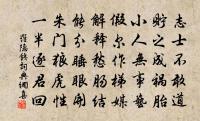 志士不敢道
貯之成禍胎
小人無事藝
假爾作梯媒
解釋愁腸結
能分睡眼開
朱門狼虎性
一半逐君回
羅隱錢詞典網書